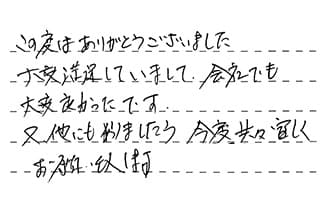 この度はありがとうございました
大変満足していまして、会社でも
大変良かったです
又他にも ましたら 今度共々宜しく
お願い致します